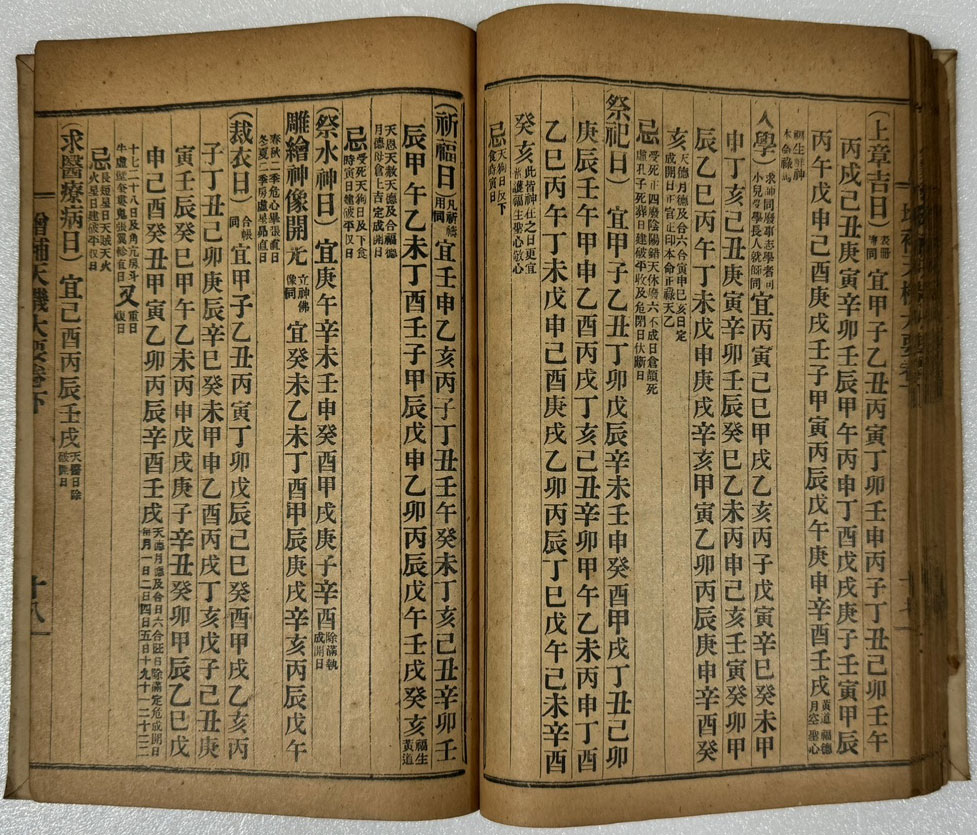 (上章吉日)表冊章同宜甲子乙丑丙寅丁卯壬申丙子丁丑己卯壬午
丙戌己丑庚寅辛卯壬辰甲午丙申丁酉戊戌庚子壬寅甲辰
丙午戊申己酉庚戌壬子甲寅丙辰戊午庚申辛酉壬戌黃道福德月空聖心
入學)求神同廢事志學者同小兒及學長人就師同宜丙寅己巳甲戌乙亥丙子戊寅辛巳癸未甲
申丁亥庚寅辛卯壬辰癸巳乙未丙申己亥壬寅癸卯甲
辰乙巳丙午丁未戊申庚戌辛亥甲寅乙卯丙辰庚申辛酉癸
亥天德月德及合六合寅申巳亥日定成開日正宜正印本命正祿天乙
忌受死正四廢陰陽錯天休 六不成日倉頡死虛孔子死葬日建破平收及危閉日伏斷日
祭祀日)宜甲子乙丑丁卯戊辰辛未壬申癸酉甲戌丁丑己卯
庚辰壬午甲申乙酉丙戌丁亥己丑辛卯甲午乙未丙申丁酉
乙巳丙午丁未戊申己酉庚戌乙卯丙辰丁巳戊午己未辛酉
癸亥此皆神在之日更宜普護福生聖心敬心
忌天狗日及下食時寅日
(祈福日)凡祈禱用同宜壬申乙亥丙子丁丑壬午癸未丁亥己丑辛卯壬
辰甲午乙未丁酉壬子甲辰戊申乙卯丙辰戊午壬戌癸亥福生黃道
天恩天赦天德及合福德月德母倉上吉定成開日
忌受死天狗日及下食時寅日建破平收日
(祭水神日)宜庚午辛未壬申癸酉甲戌庚子辛酉除滿執成開日
雕繪神像開光立神佛像同宜癸未乙未丁酉甲辰庚戌辛亥丙辰戊午
春秋二季危心畢張直日冬夏二季房虛星昴直日
(裁衣日)合帳同宜甲子乙丑丙寅丁卯戊辰己巳癸酉甲戌乙亥丙
子丁丑己卯庚辰辛巳癸未甲申乙酉丙戌丁亥戊子己丑庚
寅壬辰癸巳甲午乙未丙申戊戌庚子辛丑癸卯甲辰乙巳戊
申己酉癸丑甲寅乙卯丙辰辛酉壬戌天德月德及合日六合旺日除滿定危成開日每月一日二日四日五日十九十一二十三二
十七二十八日及角亢房斗牛虛壁奎婁鬼張翼軫直日又重日復日
忌長短星日天賊天火火星日建破平收日
(求醫療病日)宜己酉丙辰壬戌天醫日除破開日
增補天機大要卷下
十八